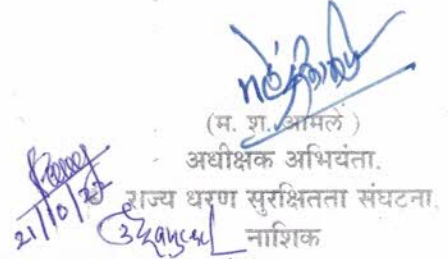 (म. श. आमले)
अधीक्षक अभियंता.
राज्य धरण सुरक्षितता संघटना.
नाशिक